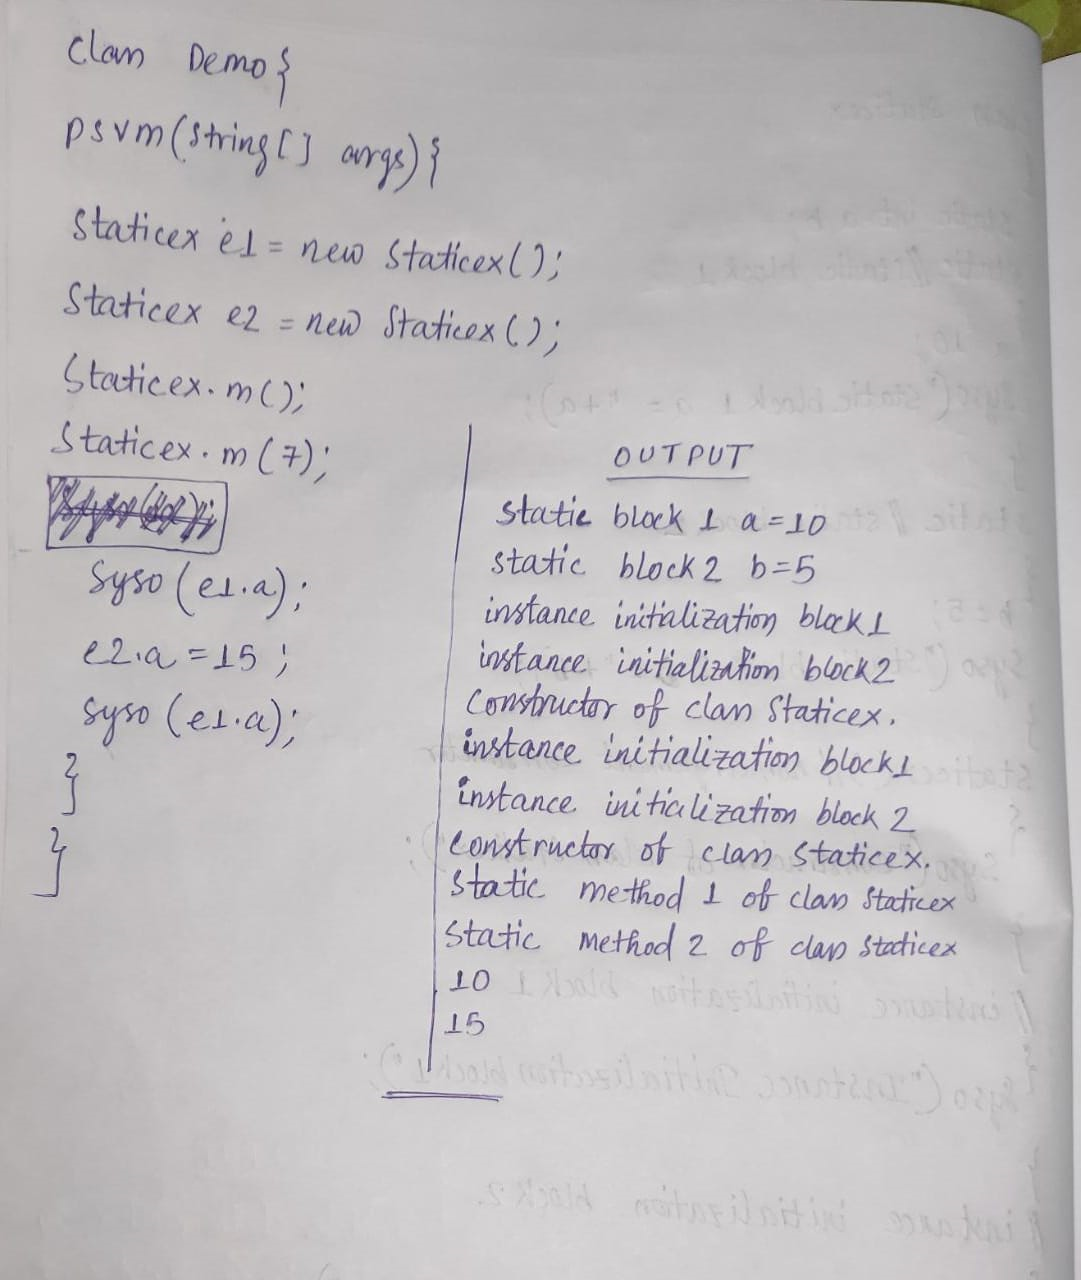 Class Demo{
psvm(String[] args){
Staticex e1 = new Staticex();
Staticex e2 = new Staticex();
Staticex.m();
Staticex.m(7);
Syso(e1.a);
e2.a = 15;
syso(e1.a);
}
}
OUTPUT
static block 1 a=10
static block 2 b=5
instance initialization block 1
instance initialization block 2
Constructor of class Staticex.
instance initialization block 1
instance initialization block 2
Constructor of class Staticex.
Static method 1 of class Staticex
Static method 2 of class Staticex
10
15